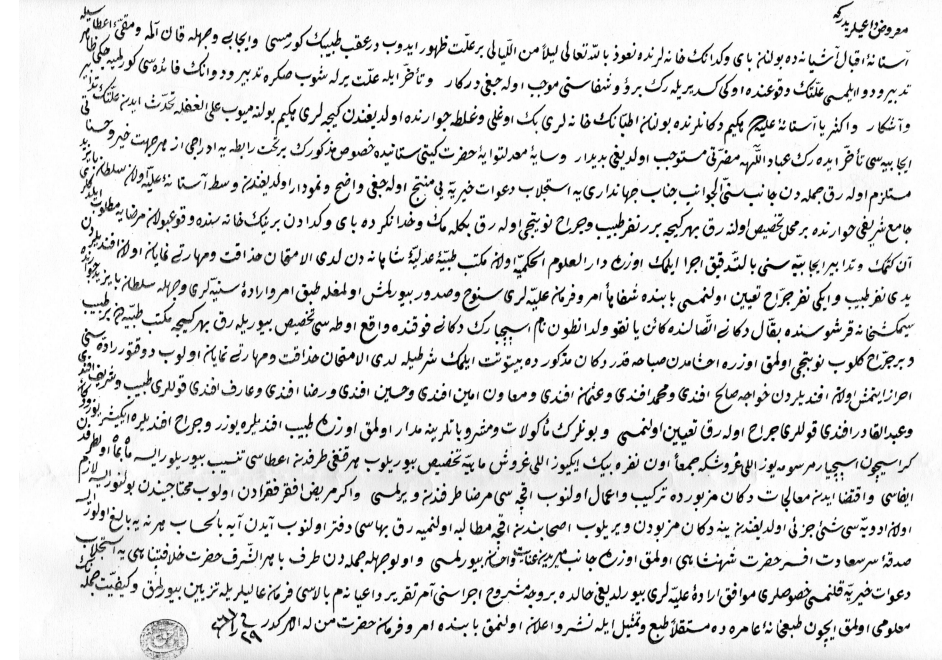 معروض داعیلریدرکه
آستانهٔ اقبال آشیانه ده بولنان بای وکدانك خانه لرنده نعوذ بالله تعالی لیلاً من اللیالی بر علت ظهور ایدوب در عقب طبیبك کورمسی وایجابی وجهله قان آلمه ومقیٔ اعطاسیله
تدبیر و دوا ایلمسی علتك وقوعنده اولکی کدیریله رك برؤ وشفاستی موجب اوله جغی درکار وتأخر ایله علت یرلشوب صکره تدبیر ودوانك فائده سی کورلمیه جکی ظاهر
وآشکار واکثریا آستانهٔ علیه حکیم دکانلرنده بولنان اطبانك خانه لری بك اوغلی وغلطه جوارنده اولدیغندن کیجه لری حکیم بولنه میوب علی الغفله تحدث ایدن علتك تدابیر
ایجابیه سی تأخر ایده رك عباد اللهه مضرتی مستوجب اولدیغی بدیدار وسایهٔ معدلتوایهٔ حضرت کیتی ستانیده خصوص مذکورك بر تحت رابطه یه ادراجی از هر جهت خیر وحسناتی
مستلزم اوله رق جمله دن جانب سنی الجوانب جناب جهانداری یه استجلاب دعوات خیریه یی منتج اوله جغی واضح ونمودار اولدیغندن وسط آستانهٔ علیه اولان سلطان بایزید
جامع شریفی جوارنده بر محل تخصیص اولنه رق بهر کیجه برر نفر طبیب وجراح نوبتجی اوله رق بکله مك وخدانکرده بای وکدادن برینك خانه سنده وقوعبولان مرضایه مطلوب ایلدکلری
آن کتمك وتدابیر ایجابیه سنی بالتدقیق اجرا ایلمك اوزره دار العلوم الحکمیهٔ اولان مکتب طبیهٔ عدلیهٔ شاهانه دن لدی الامتحان حذاقت ومهارتی نمایان اولان افندیلردن
یدی نفر طبیب وایکی نفر جراح تعیین اولنمسی بابنده شفاهاً امر وفرمان علیه لری سنوح وصدور بیورلمش اولمغله طبق امر وارادهٔ سنیه لری وجهله سلطان بایزید جوارنده
سیمکشخانه قرشوسنده بقال دکانی اتصالنده کائن یانقو ولد انطون نام اسپچیارك دکانی فوقنده واقع اوطه سی تخصیص بیوریله رق بهر کیجه مکتب طبیه دن بر طبیب
وبر جراح کلوب نوبتجی اولمق اوزره اخشامدن صباحه قدر دکان مذکورده بیتوتت ایلمك شرطیله لدی الامتحان حذاقت ومهارتی نمایان اولوب دوقتور رادهٔ سنی
احراز ایتمش اولان افندیلردن خواجه صالح افندی ومحمد افندی وعثمان افندی ومعاون امین افندی وحسین افندی ورضا افندی وعارف افندی قوللری طبیب وشریف افندی
وعبد القادر افندی قوللری جراح اوله رق تعیین اولنمسی وبونلرك مأکولات ومشروباتلرینه مدار اولمق اوزره طبیب افندیلره یوزر وجراح افندیلره الیشر یوز دکان
کراسیچون اسپچیار مرسومه یوز اللی غروشکه جمعاً اون نفره بیك ایکیوز اللی غروش ماهیه تخصیص بیوریلوب هر قنغی طرفدن اعطاسی تنسیب بیوریلورسه ماه بماه اولطرفدن
ایفاسی واقتضا ایدن معالجات دکان مزبورده ترکیب واعمال اولنوب اقچه سی مرضا طرفندن ویرلمسی واکر مریض فقر فقرادن اولوب محتاجیندن بولنورسه لازم
اولان ادویه سی شیٔ جزئی اولدیغندن ینه دکان مزبوردن ویریلوب اصحابندن اقچه مطالبه اولنمیه رق بهاسی دفتر اولنوب آیدن آیه بالحساب هر نه یه بالغ اولورسه
صدقهٔ سر سعادت افسر حضرت شهنشاهی اولمق اوزره جانب میریدن عنایت واحسان بیورلمسی واولوجهله جمله دن طرف باهر الشرف حضرت خلافتپناهی یه استجلاب
دعوات خیریه قلنمسی خصوصلری موافق ارادهٔ علیه لری بیورلدیغی حالده بروجه مشروح اجراسنی آمر تقریر داعیانه م بالاسی فرمان عالیلریله تزیین بیورلمق وکیفیت جمله نك
معلومی اولمق ایچون طبعخانهٔ عامره ده مستقلاً طبع وتمثیل ایله نشر واعلان اولنمق بابنده امر وفرمان حضرت من له الامر کدر